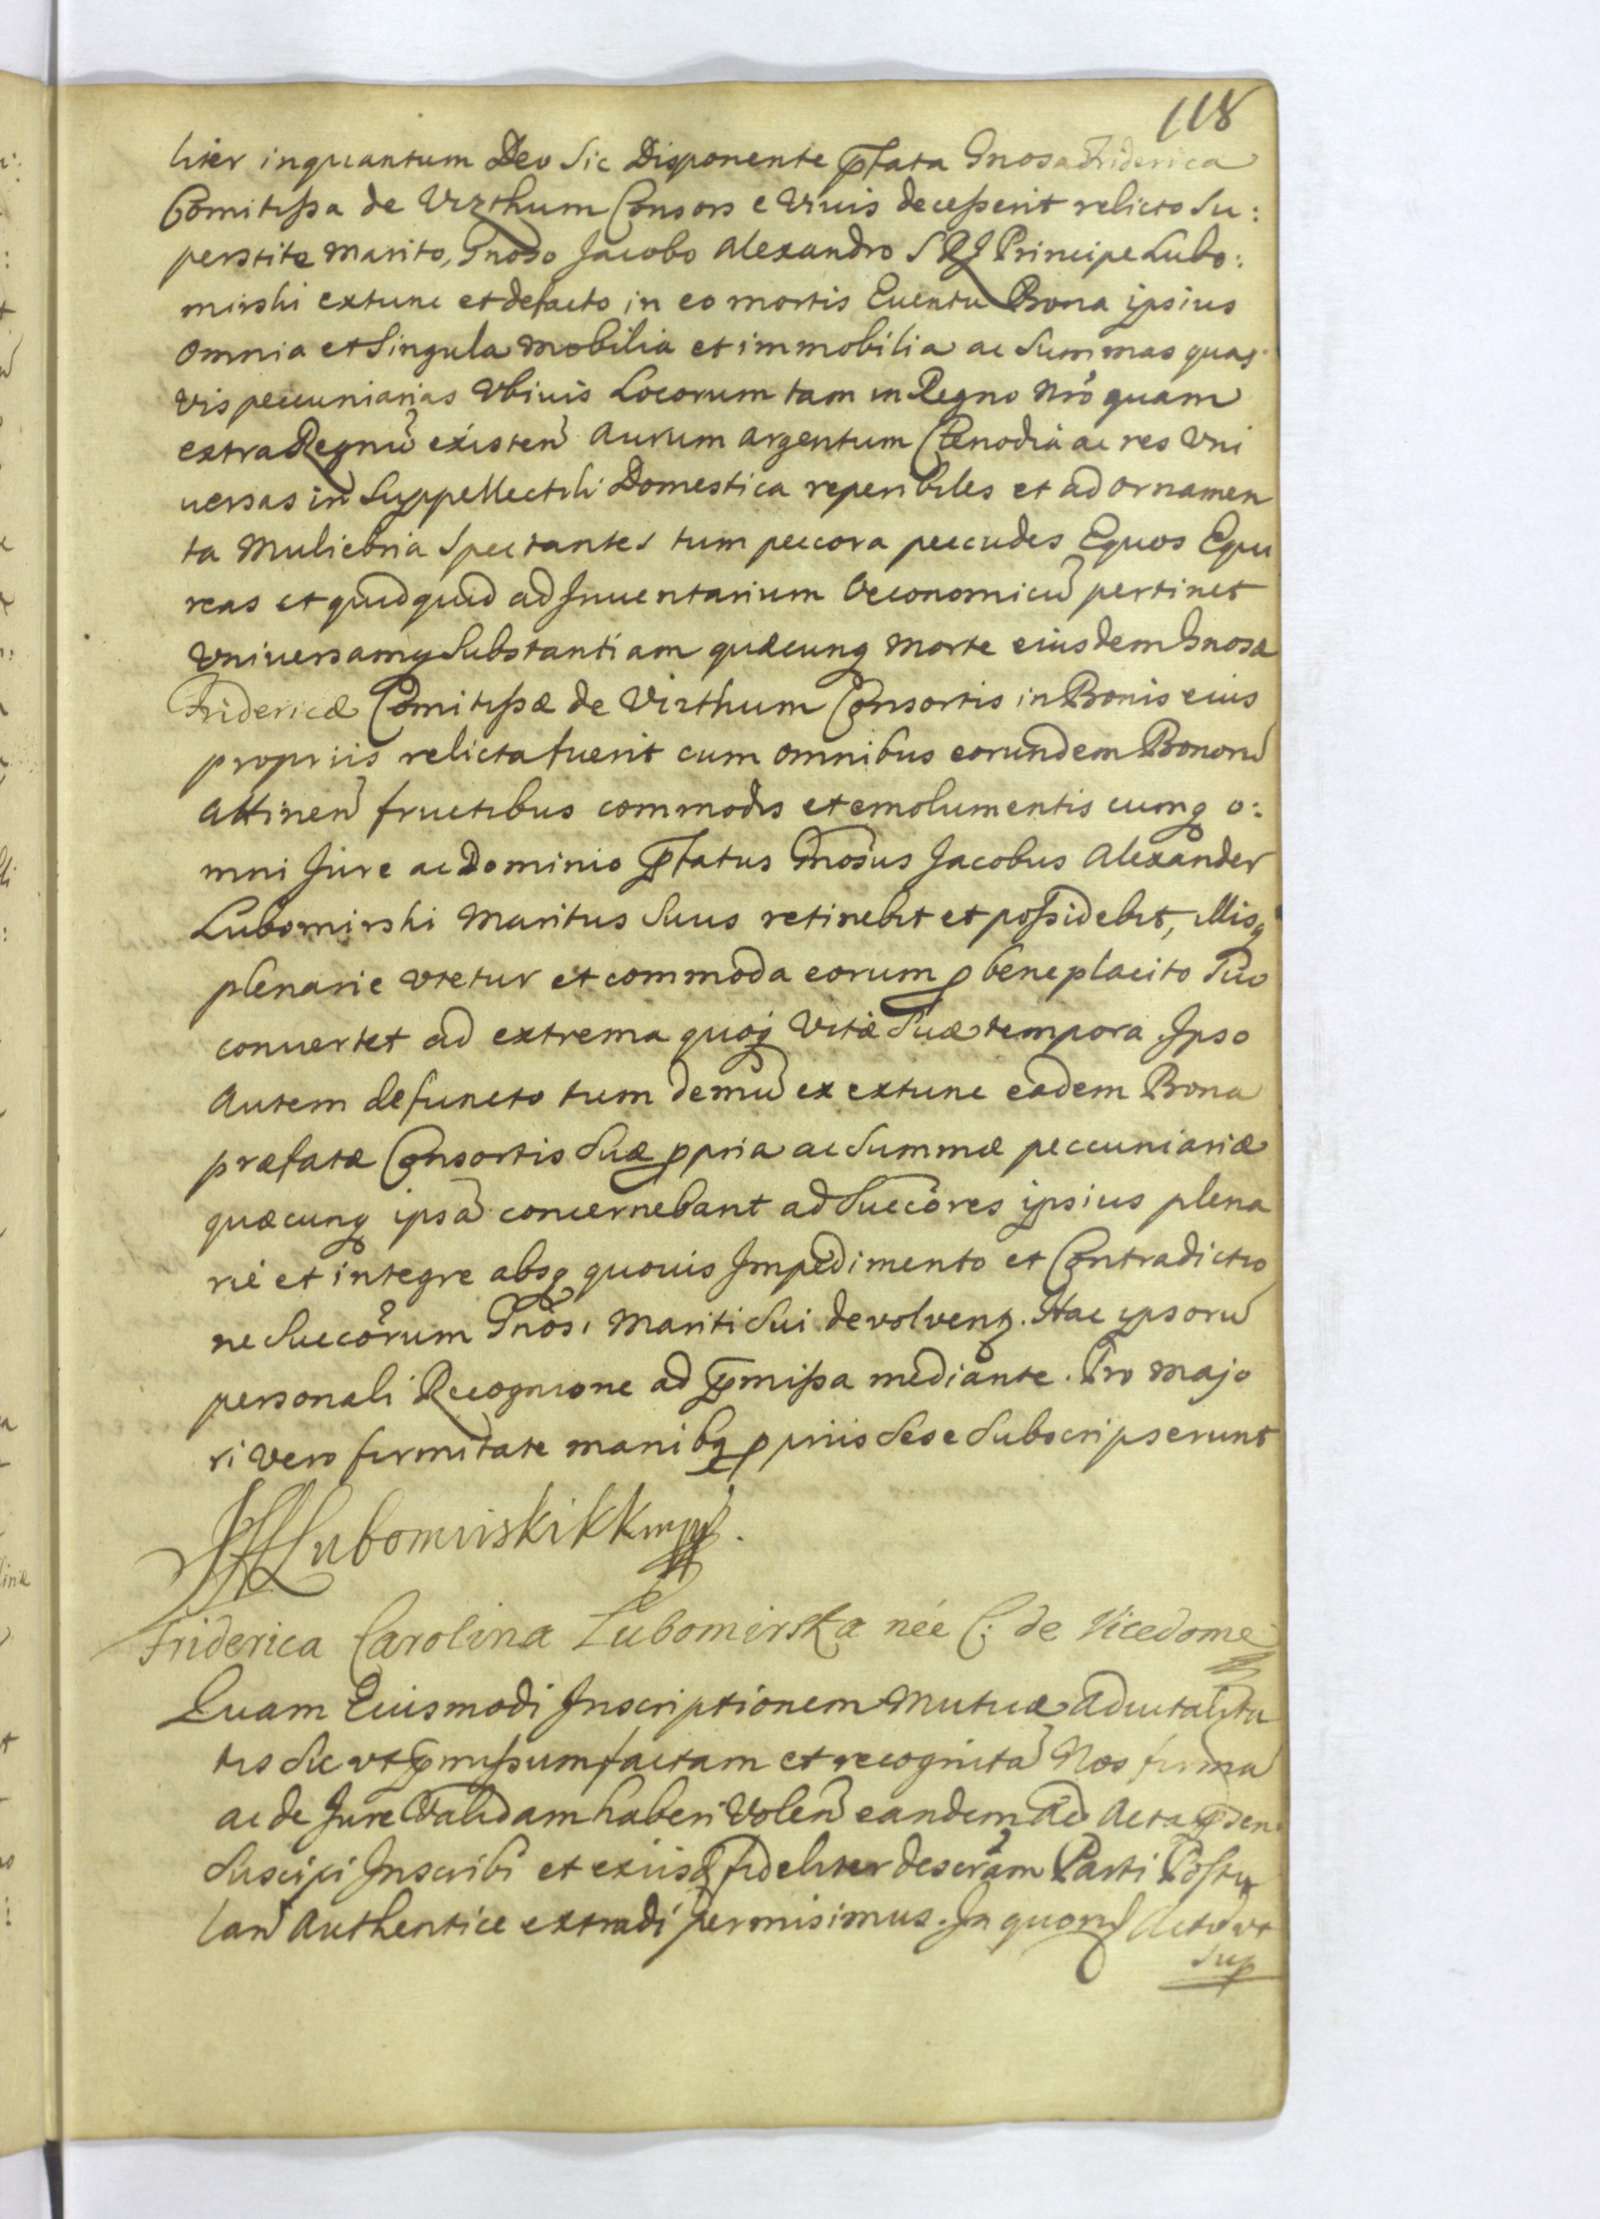 118
liter inquantum Deo Sic Disponente p̄fata Gnosa Friderica
Comitissa de Vizthum Consors e Vivis decesserit relicto Su:
perstite Marito, Gnoso Jacobo Alexandro S R J Principe Lubo:
mirski extunc et defacto in eo mortis Euentu Bona ipsius
Omnia et Singula Mobilia et immobilia ac Summas quas
vis peccuniarias Vbiuis Locorum tam in Regno Nrō quam
extra Regnū existeñ Aurum Argentum Clenodia ac res Vni
uersas in Suppellectili Domestica reperibiles et ad Ornamen
ta Muliebria Spectantes tum peccora peccudes Equos Equi
reas et quidquid ad Jnuentarium Oeconomicū pertinet
Vniuersamq Substantiam quæcunq Morte eiusdem Gnosæ
Fridericæ Comitissæ de Vizthum Consortis in Bonis eius
propriis relicta fuerit cum Omnibus eorundem Bonorū
Attineñ fructibus commodis et emolumentis cumq o:
mni Jure ac Dominio p̄fatus Gnosus Jacobus Alexander
Lubomirski Maritus Suus retinebit et possidebit, Illisq
plenarie Vtetur et commoda eorum p beneplacito Suo
conuertet ad extrema quoq Vitæ Suæ tempora Ipso
Autem defuncto tum demū ex extunc eadem Bona
præfatæ Consortis Suæ ppria ac Summæ peccuniariæ
quæcunq ipsā concernebant ad Succōres ipsius plena
rie et integre absq quouis Jmpedimento et Contradictio
ne Succōrum Gnōsi Mariti Sui devolventq. Hac ipsorū
personali Recognicione ad p̄missa mediante. Pro Majo
ri Vero firmitate manibq ppriis Sese Subscripserunt
JALubomirski KK mpp.
Friderica Carolina Lubomirska née C: de Vicedome
Quam Eiusmodi Jnscriptionem Mutuæ Aduitalita
tis Sic vt p̄missum factam et recognitā Nos firmā
ac de Jure Validam haberi Voleñ eandem Ad Acta p̄sen
Suscipi Jnscribi et exiisd fideliter descrām Parti Postu
lañ Authentice extradi permisimus. In quorū Actū vt
Sup